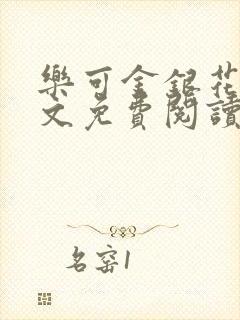 樂可金銀花
文免費閱讀
名窑1